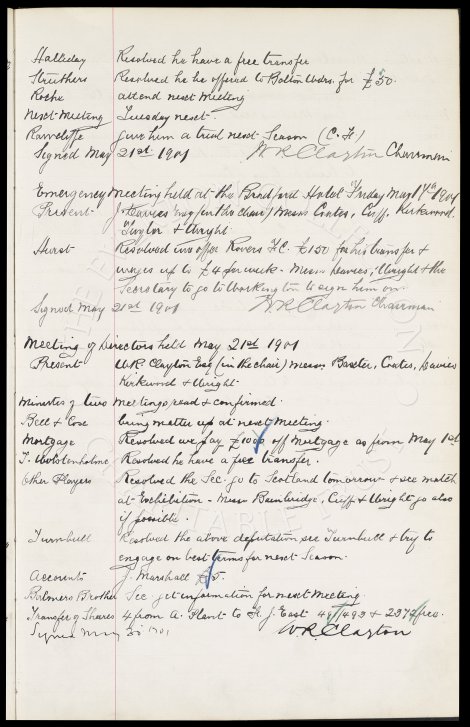 Halliday Resolved he have a free transfer
Struthers Resolved he be offered to Bolton Wdrs. for £50.
Roche attend next Meeting
Next Meeting Tuesday next.
Rawcliffe give him a trial next Season (C.F.)
Signed May 21st 1901 W R Clayton Chairman
Emergency Meeting held at the Bradford Hotel Friday May 17th 1901
Present J. Davies Esq (in the chair) Messrs Coates, Cuff, Kirkwood,
Taylor & Wright
Hurst Resolved we offer Rovers F.C. £150 for his transfer &
wages up to £4 per week. Messrs Davies, Wright & the
Secretary to go to Workington to sign him on.
Signed May 21st 1901 W R Clayton Chairman
Meeting of Directors held May 21st 1901
Present W.R. Clayton Esq (in the chair) Messrs Baxter, Coates, Davies
Kirkwood & Wright.
Minutes of two Meetings read & confirmed.
Bell & Cose bring matter up at next Meeting.
Mortgage Resolved we pay £1000 off Mortgage as from May 1st
T. Wolstenholme Resolved he have a free transfer.
Other Players Resolved the Sec. go to Scotland tomorrow & see match
at Exhibition - Messrs Bainbridge, Cuff & Wright go also
if possible.
Turnbull Resolved the above deputation see Turnbull & try to
engage on best terms for next Season.
Accounts J. Marshall £5.
Balmers Brother Sec get information for next Meeting.
Transfer of Shares 4 from A. Plant to H. J. East 493 &
Signed May 1901 W.R. Clayton